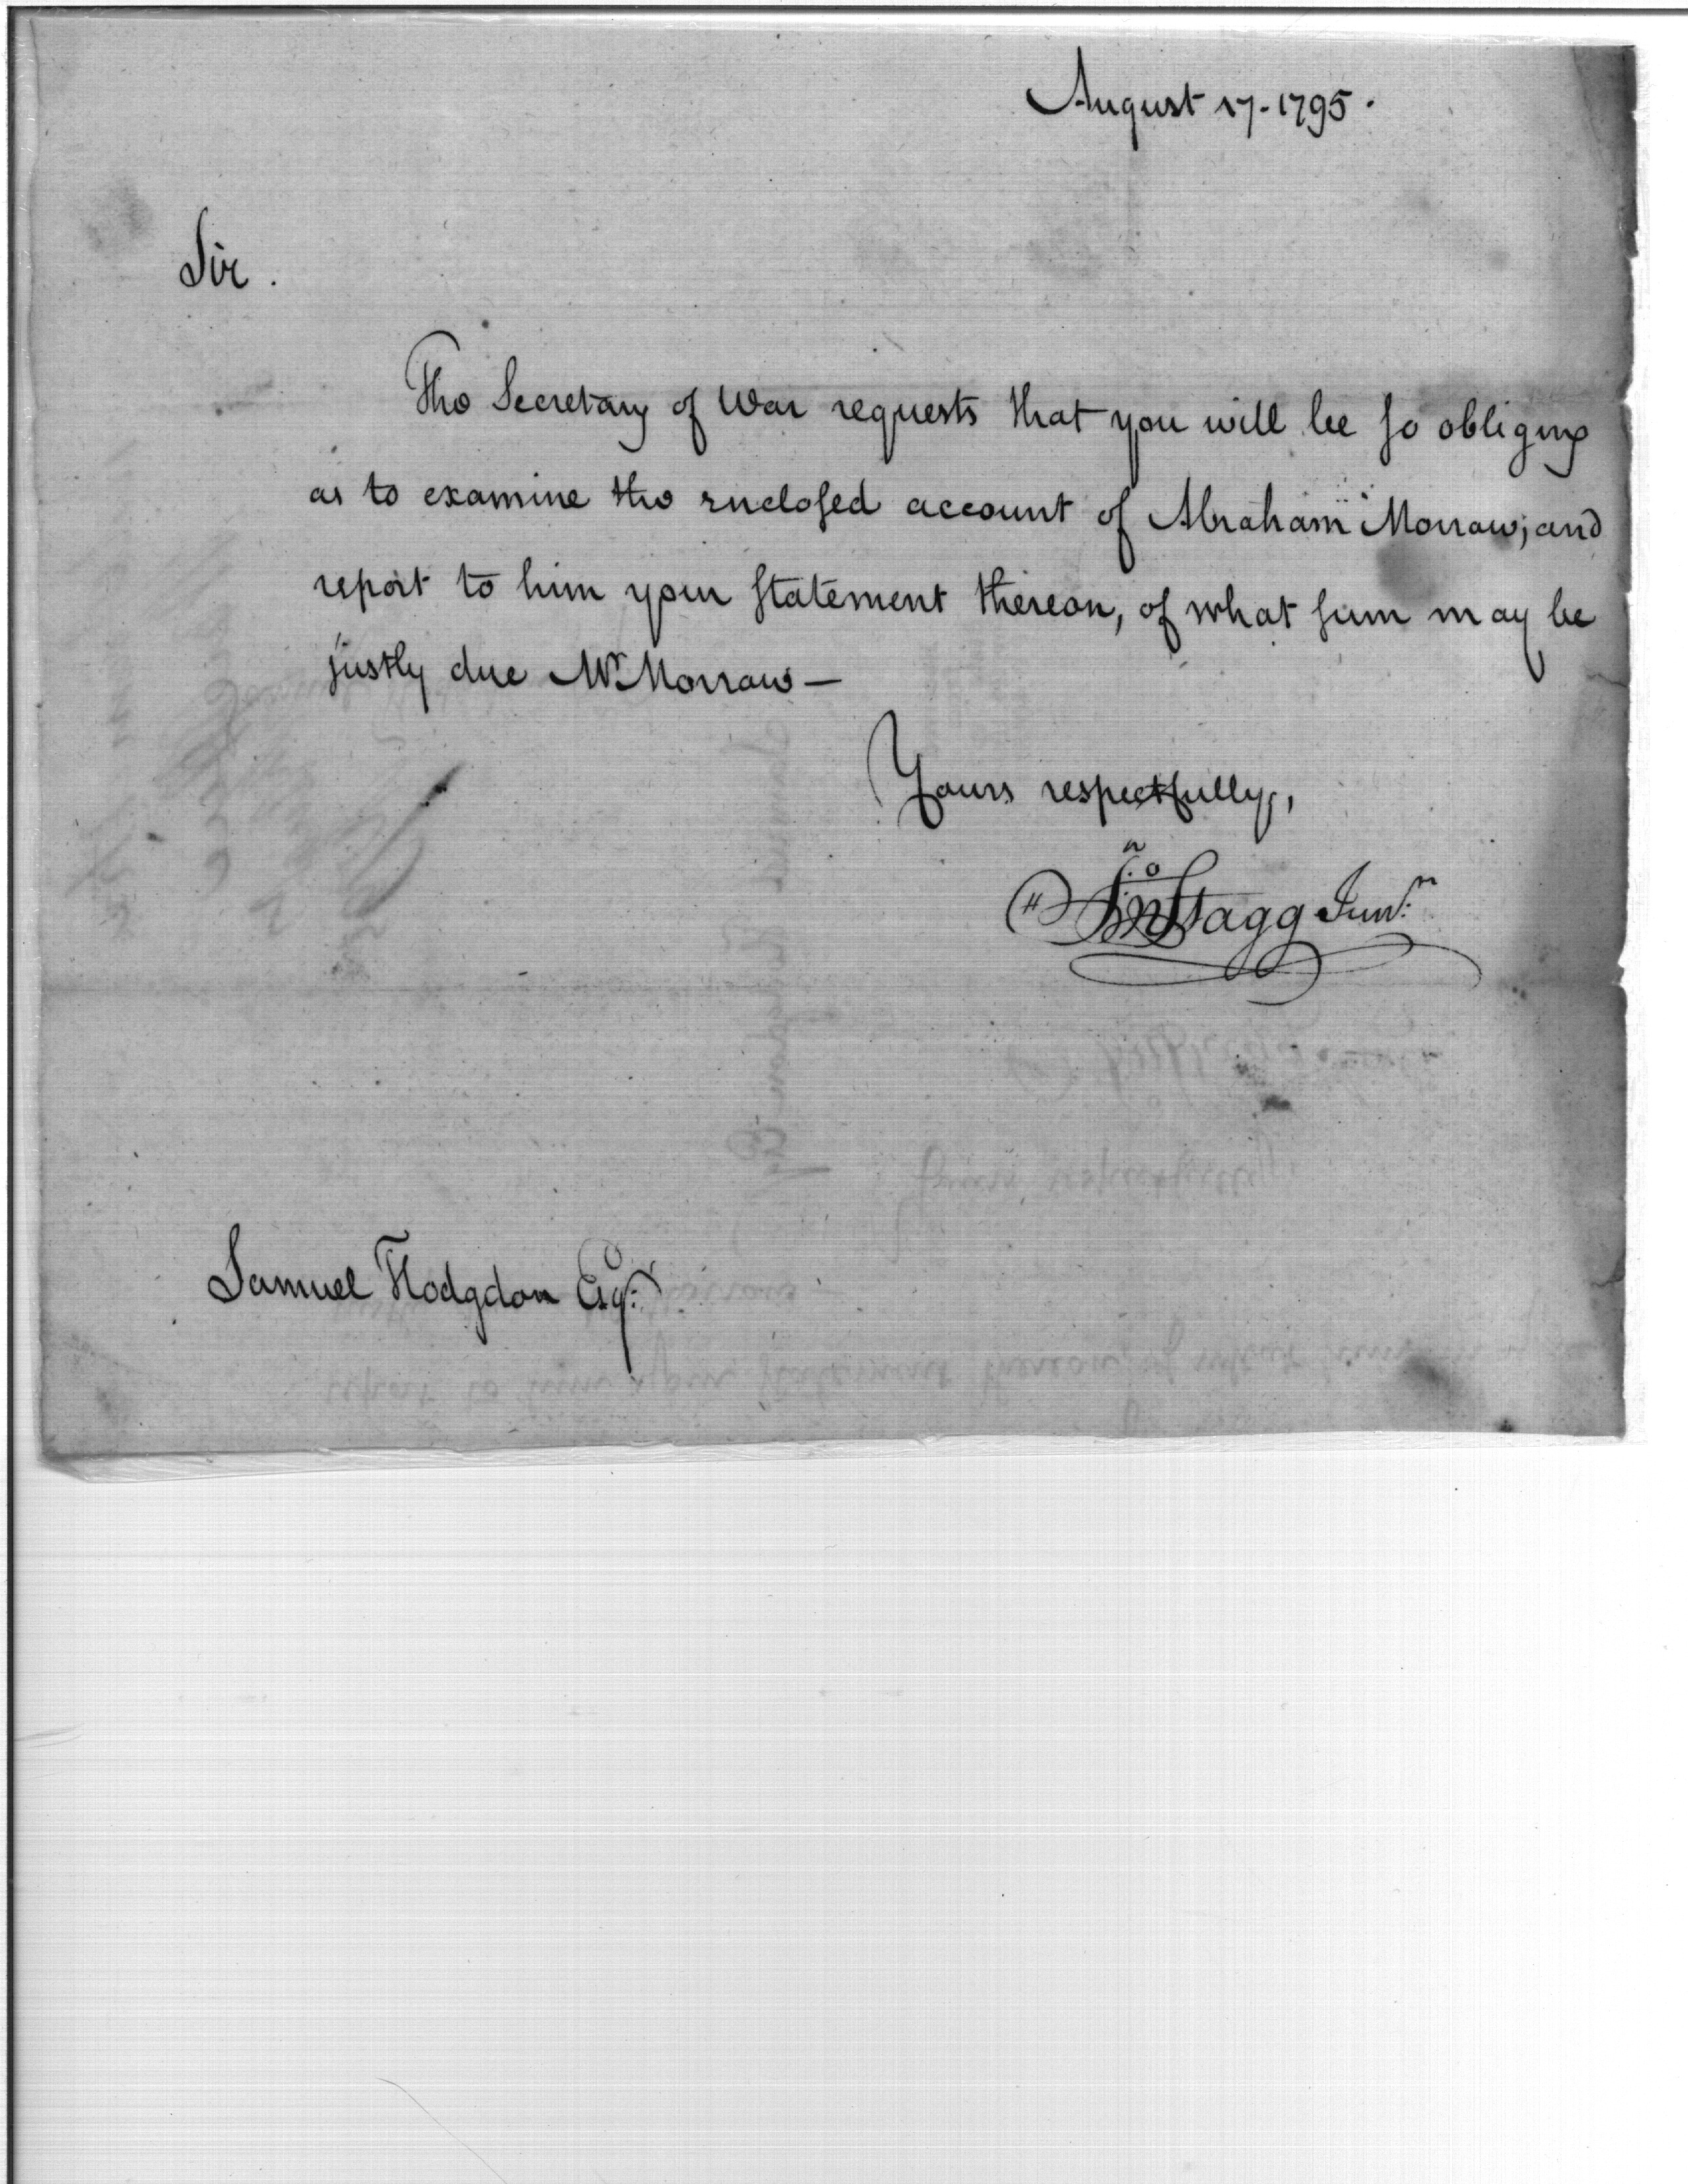 August 17 - 1795.
Sir.
The Secretary of War requests that you will be so obliging
as to examine the enclosed account of Abraham Morrow; and
report to him your statement thereon, of what sum may be
justly due Mr. Morrow —
Yours respectfully,
Jno Stagg Junr.
Samuel Hodgdon Esqr.